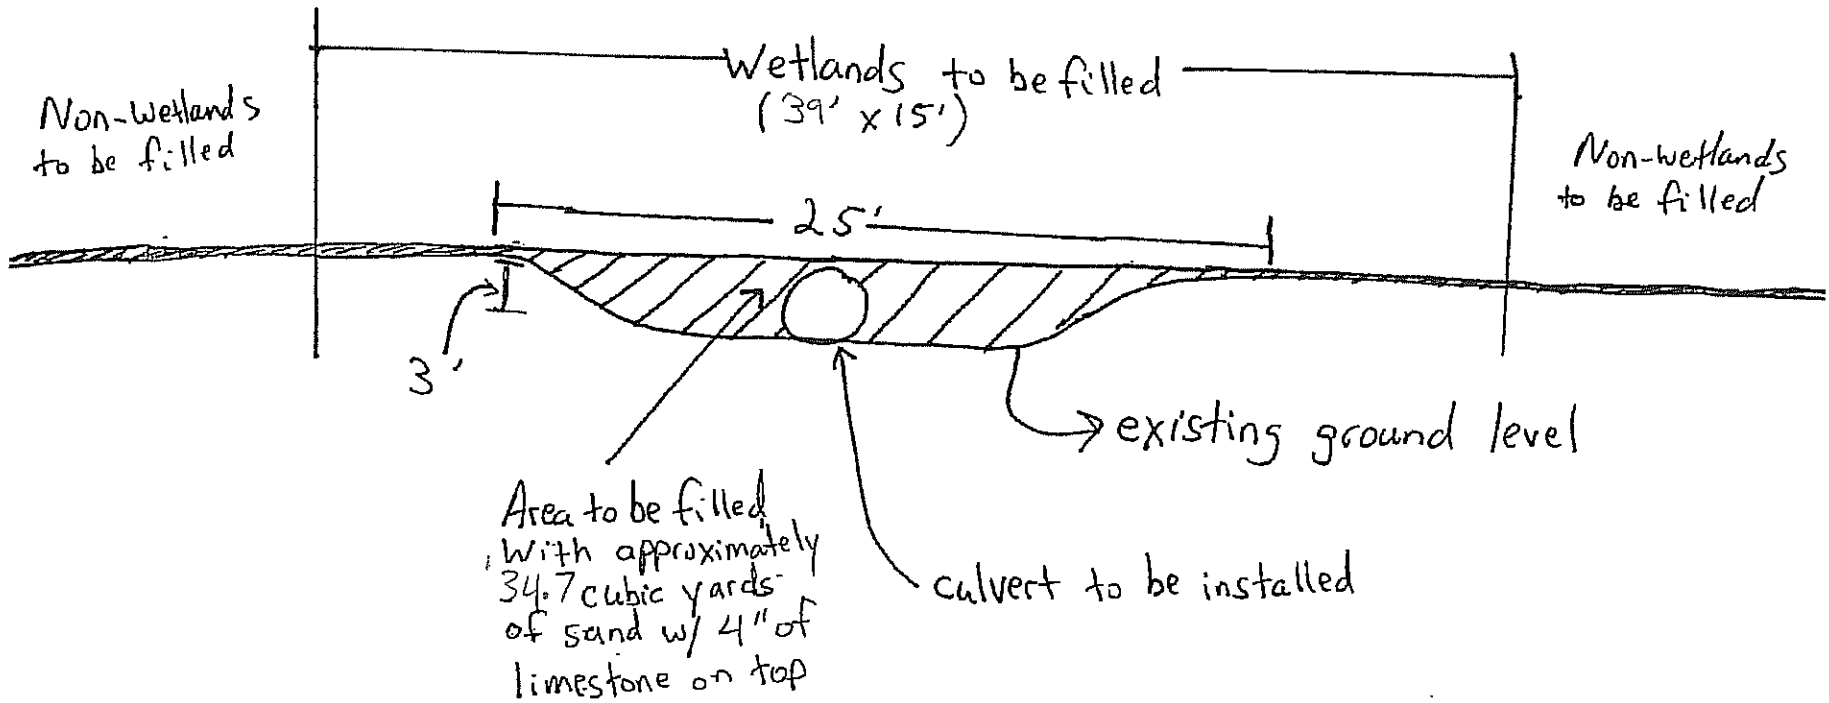 Wetlands to be filled
(39' x 15')
Non-wetlands
to be filled
Non-wetlands
to be filled
25'
3'
existing ground level
Area to be filled
with approximately
34.7 cubic yards
of sand w/ 4" of
limestone on top
culvert to be installed